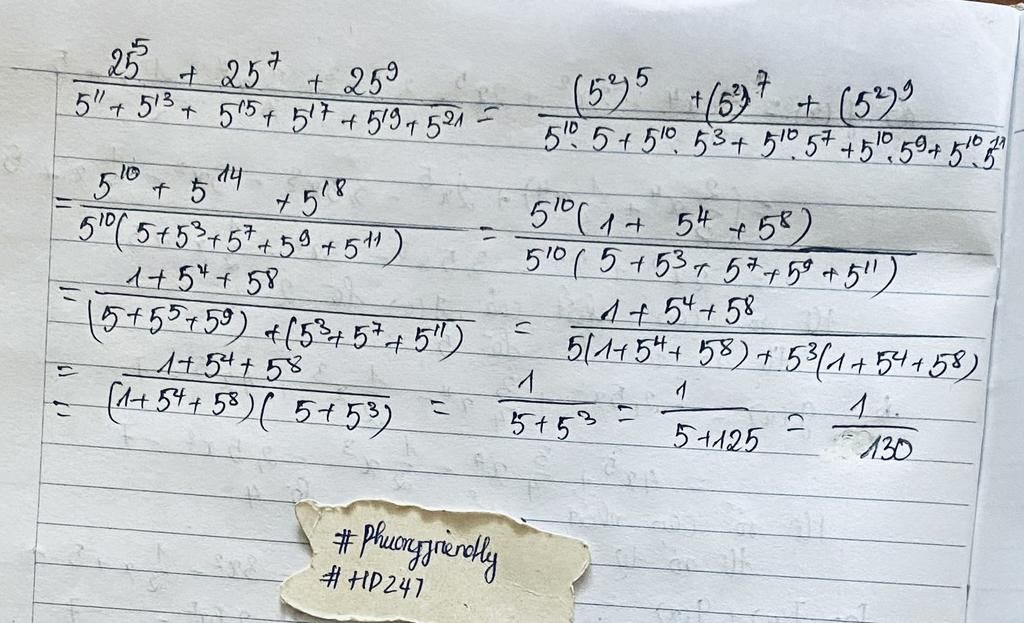 25⁵ + 25⁷ + 25⁹ / 5¹¹ + 5¹³ + 5¹⁵ + 5¹⁷ + 5¹⁹ + 5²¹ = (5²)⁵ + (5²)⁷ + (5²)⁹ / 5¹⁰. 5 + 5¹⁰. 5³ + 5¹⁰. 5⁷ + 5¹⁰. 5⁹ + 5¹⁰. 5¹¹
= 5¹⁰ + 5¹⁴ + 5¹⁸ / 5¹⁰(5 + 5³ + 5⁷ + 5⁹ + 5¹¹) = 5¹⁰(1 + 5⁴ + 5⁸) / 5¹⁰(5 + 5³ + 5⁷ + 5⁹ + 5¹¹)
= 1 + 5⁴ + 5⁸ / (5 + 5⁵ + 5⁹) + (5³ + 5⁷ + 5¹¹) = 1 + 5⁴ + 5⁸ / 5(1 + 5⁴ + 5⁸) + 5³(1 + 5⁴ + 5⁸)
= = 1 + 5⁴ + 5⁸ / (1 + 5⁴ + 5⁸)(5 + 5³) = 1 / 5 + 5³ = 1 / 5 + 125 = 1 / 130
#phuongfriendly
#HD247